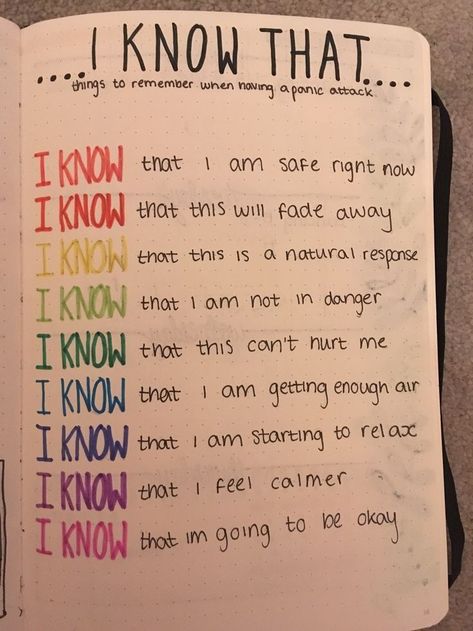 ....I KNOW THAT....
things to remember when having a panic attack
I KNOW that I am safe right now
I KNOW that this will fade away
I KNOW that this is a natural response
I KNOW that I am not in danger
I KNOW that this can't hurt me
I KNOW that I am getting enough air
I KNOW that I am starting to relax
I KNOW that I feel calmer
I KNOW that im going to be okay